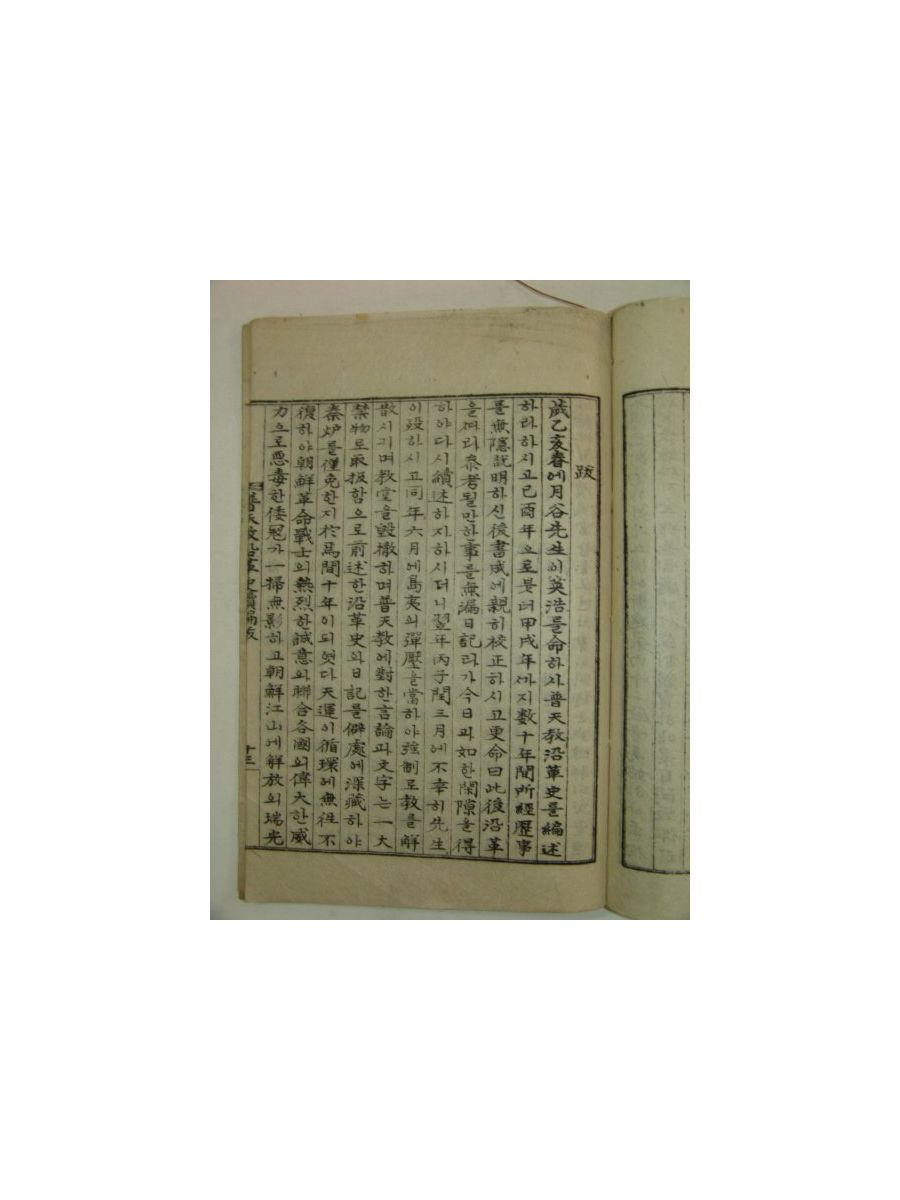 跋
歲乙亥春에月谷先生이英浩를命하사普天敎沿革史를編述
하라하시고己酉年으로붓터甲戌年까지数十年間所經歷事
를無隱說明하신後書成에親히校正하시고更命曰此後沿革
을따라參考될만한事를無漏日記라가今日과如한閑隙을得
하야다시續述하자하시더니翌年丙子閏三月에不幸히先生
이歿하시고同年六月에島夷의彈壓을當하야強制로敎를解
散시기며敎堂을毁撤하며普天敎에對한言論과文字는一大
禁物로取扱함으로前述한沿革史와日記를僻處에深藏하야
秦炉를僅免한지於焉間十年이되엿다天運이循環에無徃不
復하야朝鮮革命戰士의熱烈한誠意와聯合各國의偉大한威
力으로惡毒한倭冦가一掃無影하고朝鮮江山에解放의瑞光
普天敎沿革史續編跋 十三